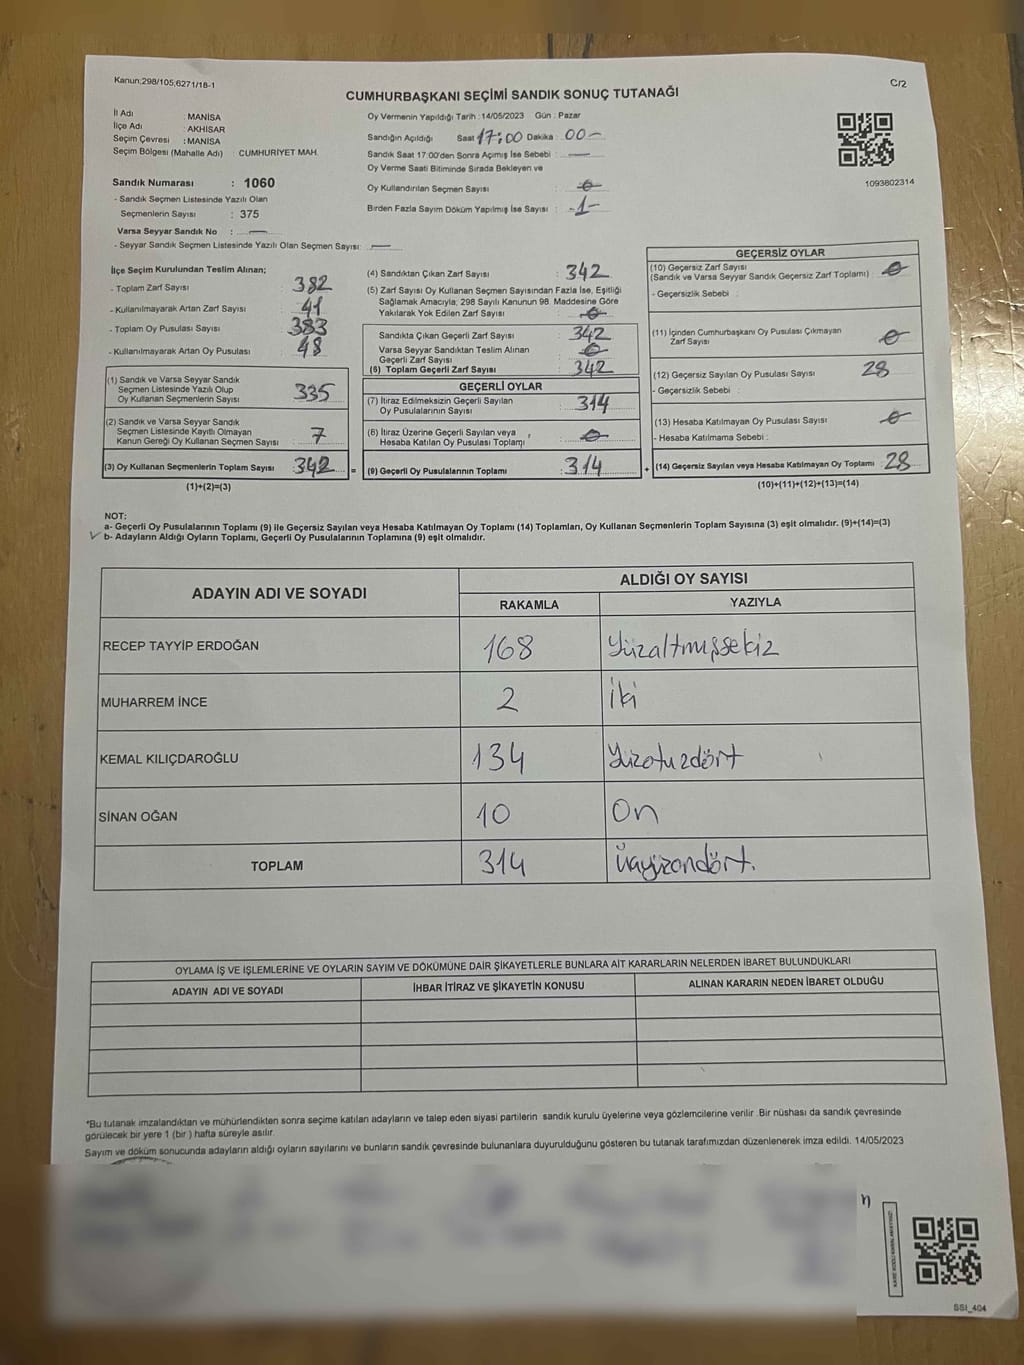 Kanun:298/105;6271/18-1
C/2
CUMHURBAŞKANI SEÇİMİ SANDIK SONUÇ TUTANAĞI
İl Adı : MANİSA
İlçe Adı : AKHİSAR
Seçim Çevresi : MANİSA
Seçim Bölgesi (Mahalle Adı) : CUMHURİYET MAH.
Sandık Numarası : 1060
- Sandık Seçmen Listesinde Yazılı Olan
Seçmenlerin Sayısı : 375
Varsa Seyyar Sandık No : —
- Seyyar Sandık Seçmen Listesinde Yazılı Olan Seçmen Sayısı: —
Oy Vermenin Yapıldığı Tarih : 14/05/2023 Gün : Pazar
Sandığın Açıldığı Saat 17:00 Dakika : 00 –
Sandık Saat 17:00'den Sonra Açmış İse Sebebi : —
Oy Verme Saati Bitiminde Sırada Bekleyen ve
Oy Kullandırılan Seçmen Sayısı : 0
Birden Fazla Sayım Döküm Yapılmış İse Sayısı : -1-
1093802314
İlçe Seçim Kurulundan Teslim Alınan;
- Toplam Zarf Sayısı : 382
- Kullanılmayarak Artan Zarf Sayısı : 41
- Toplam Oy Pusulası Sayısı : 383
- Kullanılmayarak Artan Oy Pusulası : 48
(1) Sandık ve Varsa Seyyar Sandık
Seçmen Listesinde Yazılı Olup
Oy Kullanan Seçmenlerin Sayısı : 335
(2) Sandık ve Varsa Seyyar Sandık
Seçmen Listesinde Kayıtlı Olmayan
Kanun Gereği Oy Kullanan Seçmen Sayısı : 7
(3) Oy Kullanan Seçmenlerin Toplam Sayısı : 342 =
(1)+(2)=(3)
(4) Sandıktan Çıkan Zarf Sayısı : 342
(5) Zarf Sayısı Oy Kullanan Seçmen Sayısından Fazla İse, Eşitliği
Sağlamak Amacıyla; 298 Sayılı Kanunun 98. Maddesine Göre
Yakılarak Yok Edilen Zarf Sayısı : 0
Sandıkta Çıkan Geçerli Zarf Sayısı : 342
Varsa Seyyar Sandıktan Teslim Alınan
Geçerli Zarf Sayısı : 0
(6) Toplam Geçerli Zarf Sayısı : 342
GEÇERLİ OYLAR
(7) İtiraz Edilmeksizin Geçerli Sayılan
Oy Pusulalarının Sayısı : 314
(8) İtiraz Üzerine Geçerli Sayılan veya
Hesaba Katılan Oy Pusulası Toplamı : 0
(9) Geçerli Oy Pusulalarının Toplamı : 314 +
GEÇERSİZ OYLAR
(10) Geçersiz Zarf Sayısı
(Sandık ve Varsa Seyyar Sandık Geçersiz Zarf Toplamı) : 0
- Geçersizlik Sebebi :
(11) İçinden Cumhurbaşkanı Oy Pusulası Çıkmayan
Zarf Sayısı : 0
(12) Geçersiz Sayılan Oy Pusulası Sayısı : 28
- Geçersizlik Sebebi :
(13) Hesaba Katılmayan Oy Pusulası Sayısı : 0
- Hesaba Katılmama Sebebi :
(14) Geçersiz Sayılan veya Hesaba Katılmayan Oy Toplamı : 28
(10)+(11)+(12)+(13)=(14)
NOT:
a- Geçerli Oy Pusulalarının Toplamı (9) ile Geçersiz Sayılan veya Hesaba Katılmayan Oy Toplamı (14) Toplamları, Oy Kullanan Seçmenlerin Toplam Sayısına (3) eşit olmalıdır. (9)+(14)=(3)
b- Adayların Aldığı Oyların Toplamı, Geçerli Oy Pusulalarının Toplamına (9) eşit olmalıdır.
ADAYIN ADI VE SOYADI
ALDIĞI OY SAYISI
RAKAMLA YAZIYLA
RECEP TAYYİP ERDOĞAN 168 Yüzaltmışsekiz
MUHARREM İNCE 2 İki
KEMAL KILIÇDAROĞLU 134 Yüzotuzdört
SİNAN OĞAN 10 On
TOPLAM 314 Üçyüzondört.
OYLAMA İŞ VE İŞLEMLERİNE VE OYLARIN SAYIM VE DÖKÜMÜNE DAİR ŞİKAYETLERLE BUNLARA AİT KARARLARIN NELERDEN İBARET BULUNDUKLARI
ADAYIN ADI VE SOYADI İHBAR İTİRAZ VE ŞİKAYETİN KONUSU ALINAN KARARIN NEDEN İBARET OLDUĞU
*Bu tutanak imzalandıktan ve mühürlendikten sonra seçime katılan adayların ve talep eden siyasi partilerin sandık kurulu üyelerine veya gözlemcilerine verilir .Bir nüshası da sandık çevresinde
görülecek bir yere 1 (bir ) hafta süreyle asılır.
Sayım ve döküm sonucunda adayların aldığı oyların sayılarını ve bunların sandık çevresinde bulunanlara duyurulduğunu gösteren bu tutanak tarafımızdan düzenlenerek imza edildi. 14/05/2023
SSI_404